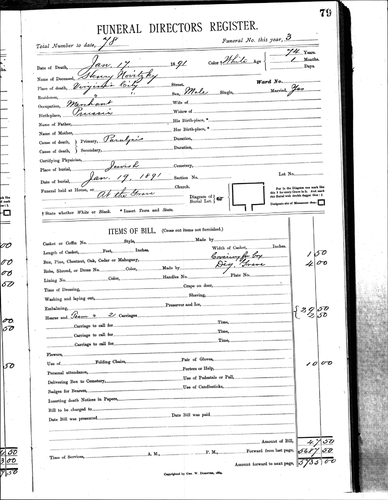 79
FUNERAL DIRECTORS REGISTER.
Total Number to date, 78 Funeral No. this year, 3
Date of Death, Jan 17 1891 Color † White Age 74 Years.
1 Months
Days
Name of Deceased, Henry Novitzky
Ward No.
Place of death, Virginia City Street,
Residence, Sex, Male Single, Married, Yes
Occupation, Merchant Wife of
Birthplace, Prussia Widow of
Name of Father, His Birth-place, *
Name of Mother, Her Birth-place, *
Cause of death, } Primary, Paralysis Duration,
Cause of death, } Secondary, Duration,
Certifying Physician,
Place of burial, Jewish Cemetery,
Date of burial, Jan. 19, 1891 Section No. Lot No.
Funeral held at Home, or Church.
At the Grave
Diagram of Burial Lot.
† State whether White or Black. * Insert Town and State.
ITEMS OF BILL. (Cross out items not furnished.)
Casket or Coffin No. Style, Made by
Length of Casket, Feet, Inches. Width of Casket, Inches.
Box, Pine, Chestnut, Oak, Cedar or Mahogany, 1 50
Robe, Shroud, or Dress No. Color, Made by Dig. Grave 4 00
Lining No. Color, Handles No. Plate No.
Time of Dressing, Crape on door,
Washing and laying out, Shaving,
Embalming, Preserver and Ice,
Hearse and 2 Carriages
Carriage to call for Time,
Carriage to call for Time,
Carriage to call for Time,
Flowers,
Use of Folding Chairs, Pair of Gloves, 10 00
Personal attendance, Porters or Help,
Delivering Box to Cemetery, Use of Pedestals or Pall,
Badges for Bearers, Use of Candlesticks,
Inserting death Notices in Papers,
Bill to be charged to
Date Bill was presented Date Bill was paid
Amount of Bill, 47 50
Time of Services, A. M., P. M., Forward from last page, 5687 50
Amount forward to next page, 5735 00